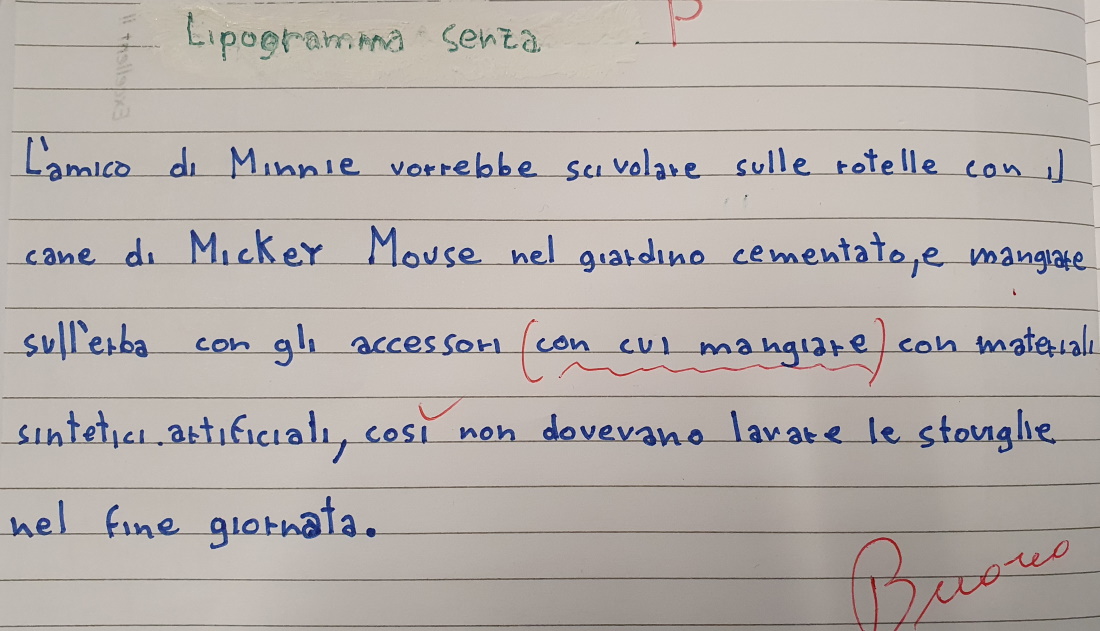 Lipogramma senza P
L'amico di Minnie vorrebbe scivolare sulle rotelle con il
cane di Micker Mouse nel giardino cementato, e mangiare
sull'erba con gli accessori (con cui mangiare) con materiali
sintetici.artificiali, così non dovevano lavare le stoviglie
nel fine giornata.
Buono